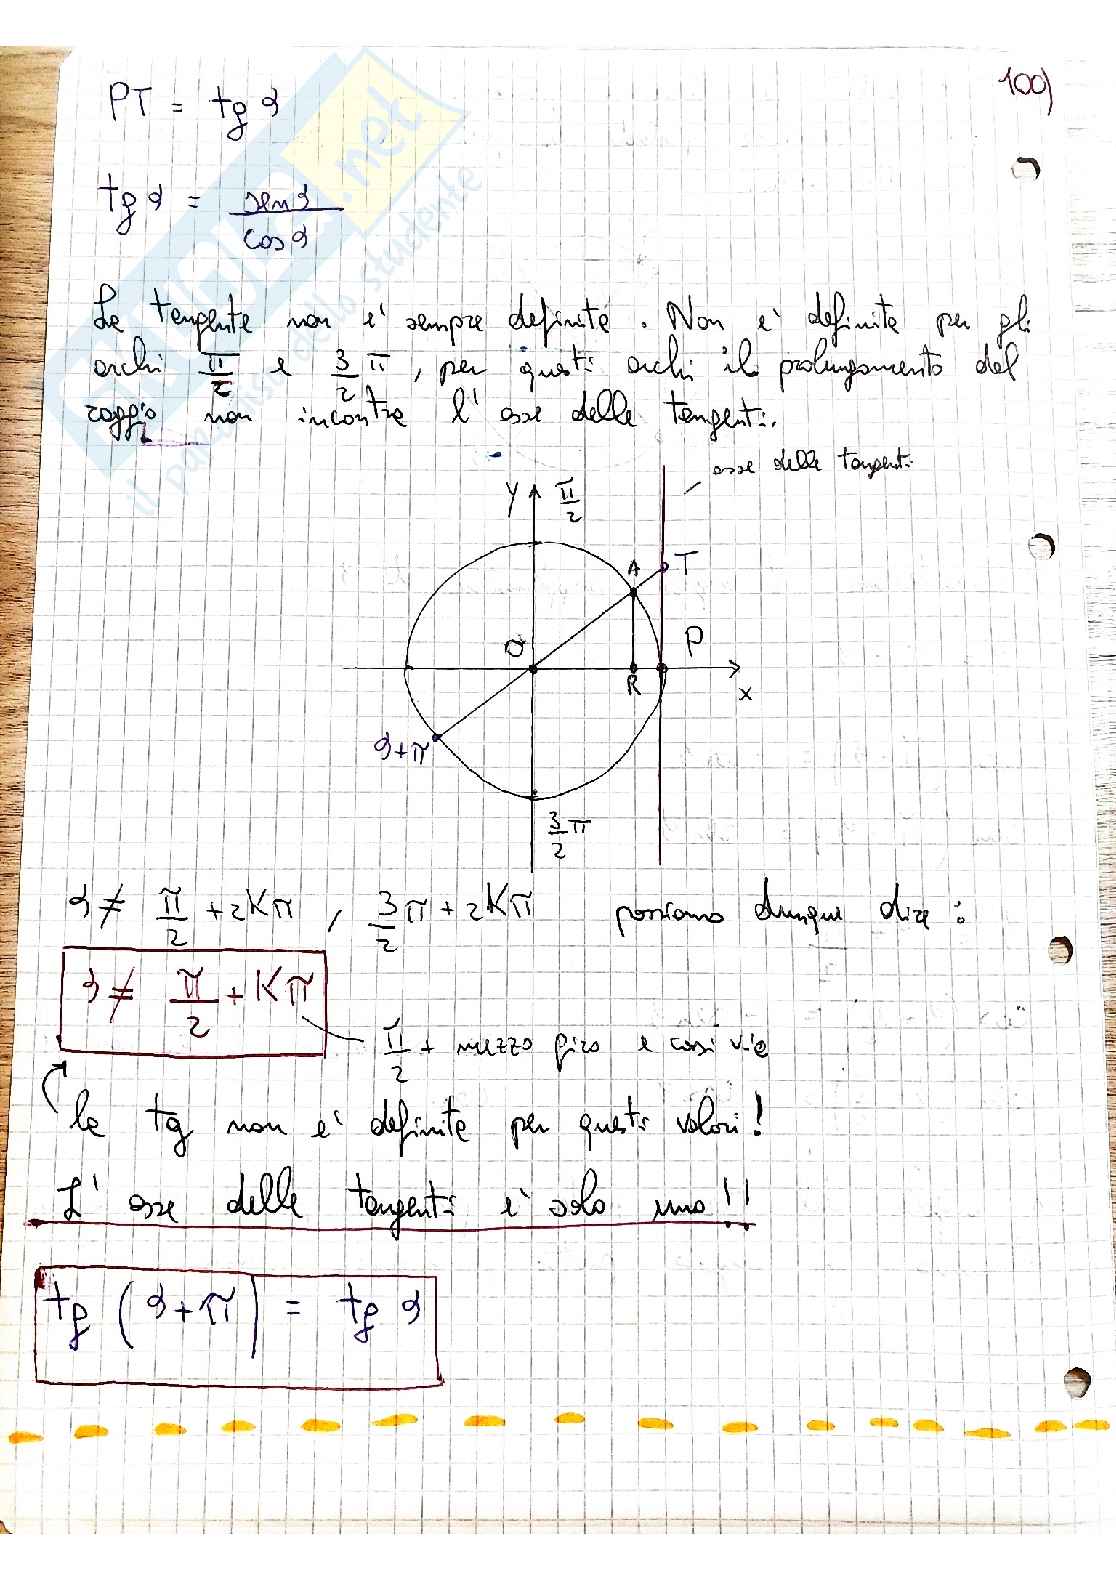 100)
PT = tg α
tg α = sen α / cos α
La tangente non è sempre definita. Non è definita per gli
archi π/2 e 3/2 π, per questi archi il prolungamento del
raggio non incontra l'asse delle tangenti.
asse delle tangenti
y π/2
A T
O P
R x
α+π
3/2 π
α ≠ π/2 + 2Kπ , 3/2 π + 2Kπ possiamo dunque dire:
α ≠ π/2 + Kπ
π/2 + mezzo giro e così via
la tg non è definita per questi valori!
L'asse delle tangenti è solo uno!!
tg (α+π) = tg α
.net
il paradiso dello studente